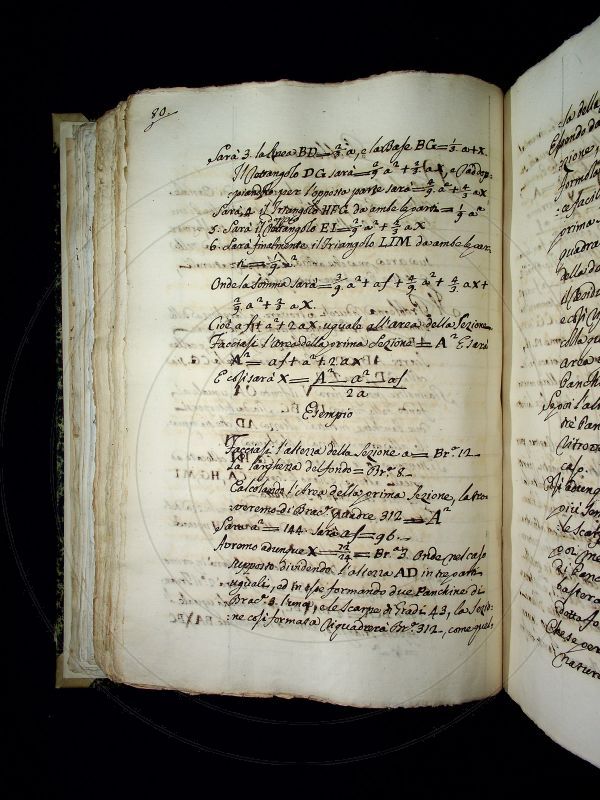 80
Sarà 3. la linea BD = 2/3 a, e la Base BG = 1/3 a + X.
Il Rettangolo DG sarà = 2/9 a² + 2/3 a X, e raddop-
piandolo per l'opposta parte sarà = 4/9 a² + 4/3 a X
Sarà 4. il Triangolo HFG da ambe le parti = 1/9 a²
5. Sarà il Rettangolo EI = 2/9 a² + 2/3 a X
6. Sarà finalmente il Triangolo LIM da ambe le par-
ti = 1/9 a²
Onde la somma sarà = a² + af + 4/9 a² + 4/3 a X +
2/9 a² + 2/3 a X.
Cioè af + a² + 2 a X uguale all'area della Sezione
Facciasi l'area della prima Sezione = A² E sarà
A² = af + a² + 2 a X
E così sarà X = A² - a² - af
2a
Esempio
Facciasi l'altezza della Sezione a = Br.ª 12
La larghezza del fondo = Br.ª 8
Calcolando l'Area della prima Sezione, la tro-
veremo di Brac.ª quadre 312 = A²
Sarà a² = 144 sarà af = 96.
Avremo adunque X = 72/24 = Br.ª 3 Onde nel caso
supposto dividendo l'altezza AD in tre parti
uguali, ad in esse formando due Panchine di
Brac.ª 3 l'una, e le Scarpe di Gradi 45, la Sezio-
:ne così formata riquadrerà Br.ª 312, come quel-